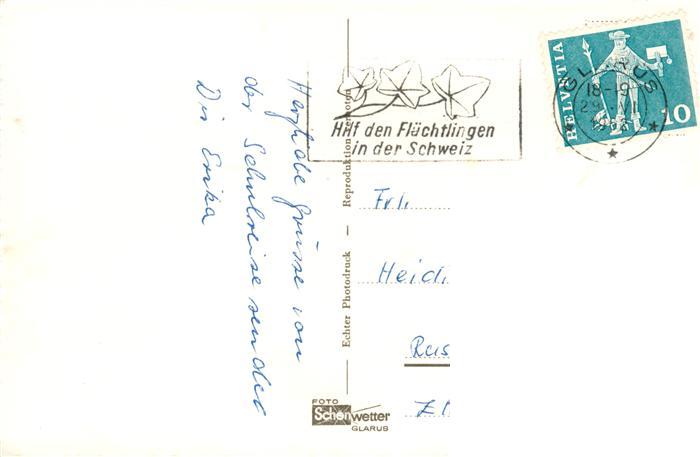 Herzliche Grüsse von
der Schulreise sendet
Dir Erika
Hilf den Flüchtlingen
in der Schweiz
HELVETIA
10
GLARUS
18-19
29. VI
Echter Photodruck — Reproduktion verboten
Frl.
Heidi
FOTO
Schönwetter
GLARUS